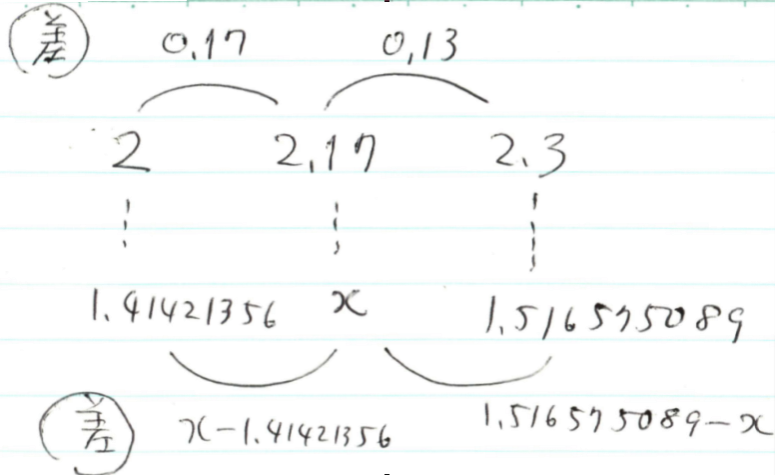 差 0.17 0.13
2 2.17 2.3
1.41421356 x 1.516575089
差 x-1.41421356 1.516575089-x